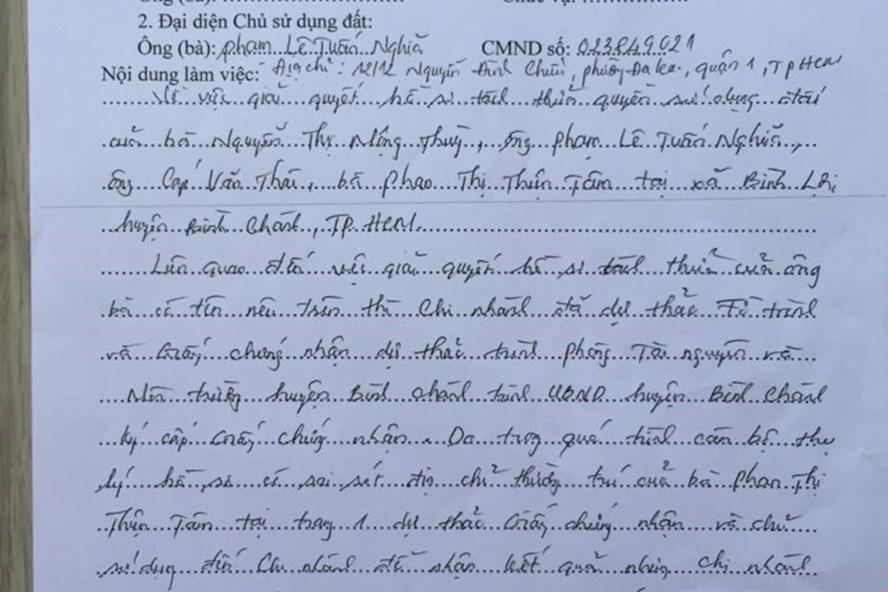 Ông (bà): ................ Chức vụ: ................
2. Đại diện Chủ sử dụng đất:
Ông (bà): Phạm Lê Tuấn Nghĩa CMND số: 023849021
Nội dung làm việc: Địa chỉ: 12/12 Nguyễn Đình Chiểu, phường Đa Kao, quận 1, TP HCM
Về việc giải quyết hồ sơ tách thửa quyền sử dụng đất
của bà Nguyễn Thị Mộng Thuỳ, ông Phạm Lê Tuấn Nghĩa,
ông Cap Văn Thái, bà Phan Thị Thiện Tâm tại xã Bình Lợi,
huyện Bình Chánh, TP. HCM.
Liên quan đến việc giải quyết hồ sơ tách thửa của ông
bà có tên nêu trên thì Chi nhánh đã dự thảo Tờ trình
và Giấy chứng nhận dự thảo trình phòng Tài nguyên và
Môi trường huyện Bình Chánh trình UBND huyện Bình Chánh
ký cấp Giấy chứng nhận. Do trong quá trình cán bộ thụ
lý hồ sơ có sai sót địa chỉ thường trú của bà Phan Thị
Thiện Tâm tại trang 1 dự thảo Giấy chứng nhận và chủ
sử dụng đến Chi nhánh để nhận kết quả nhưng chi nhánh